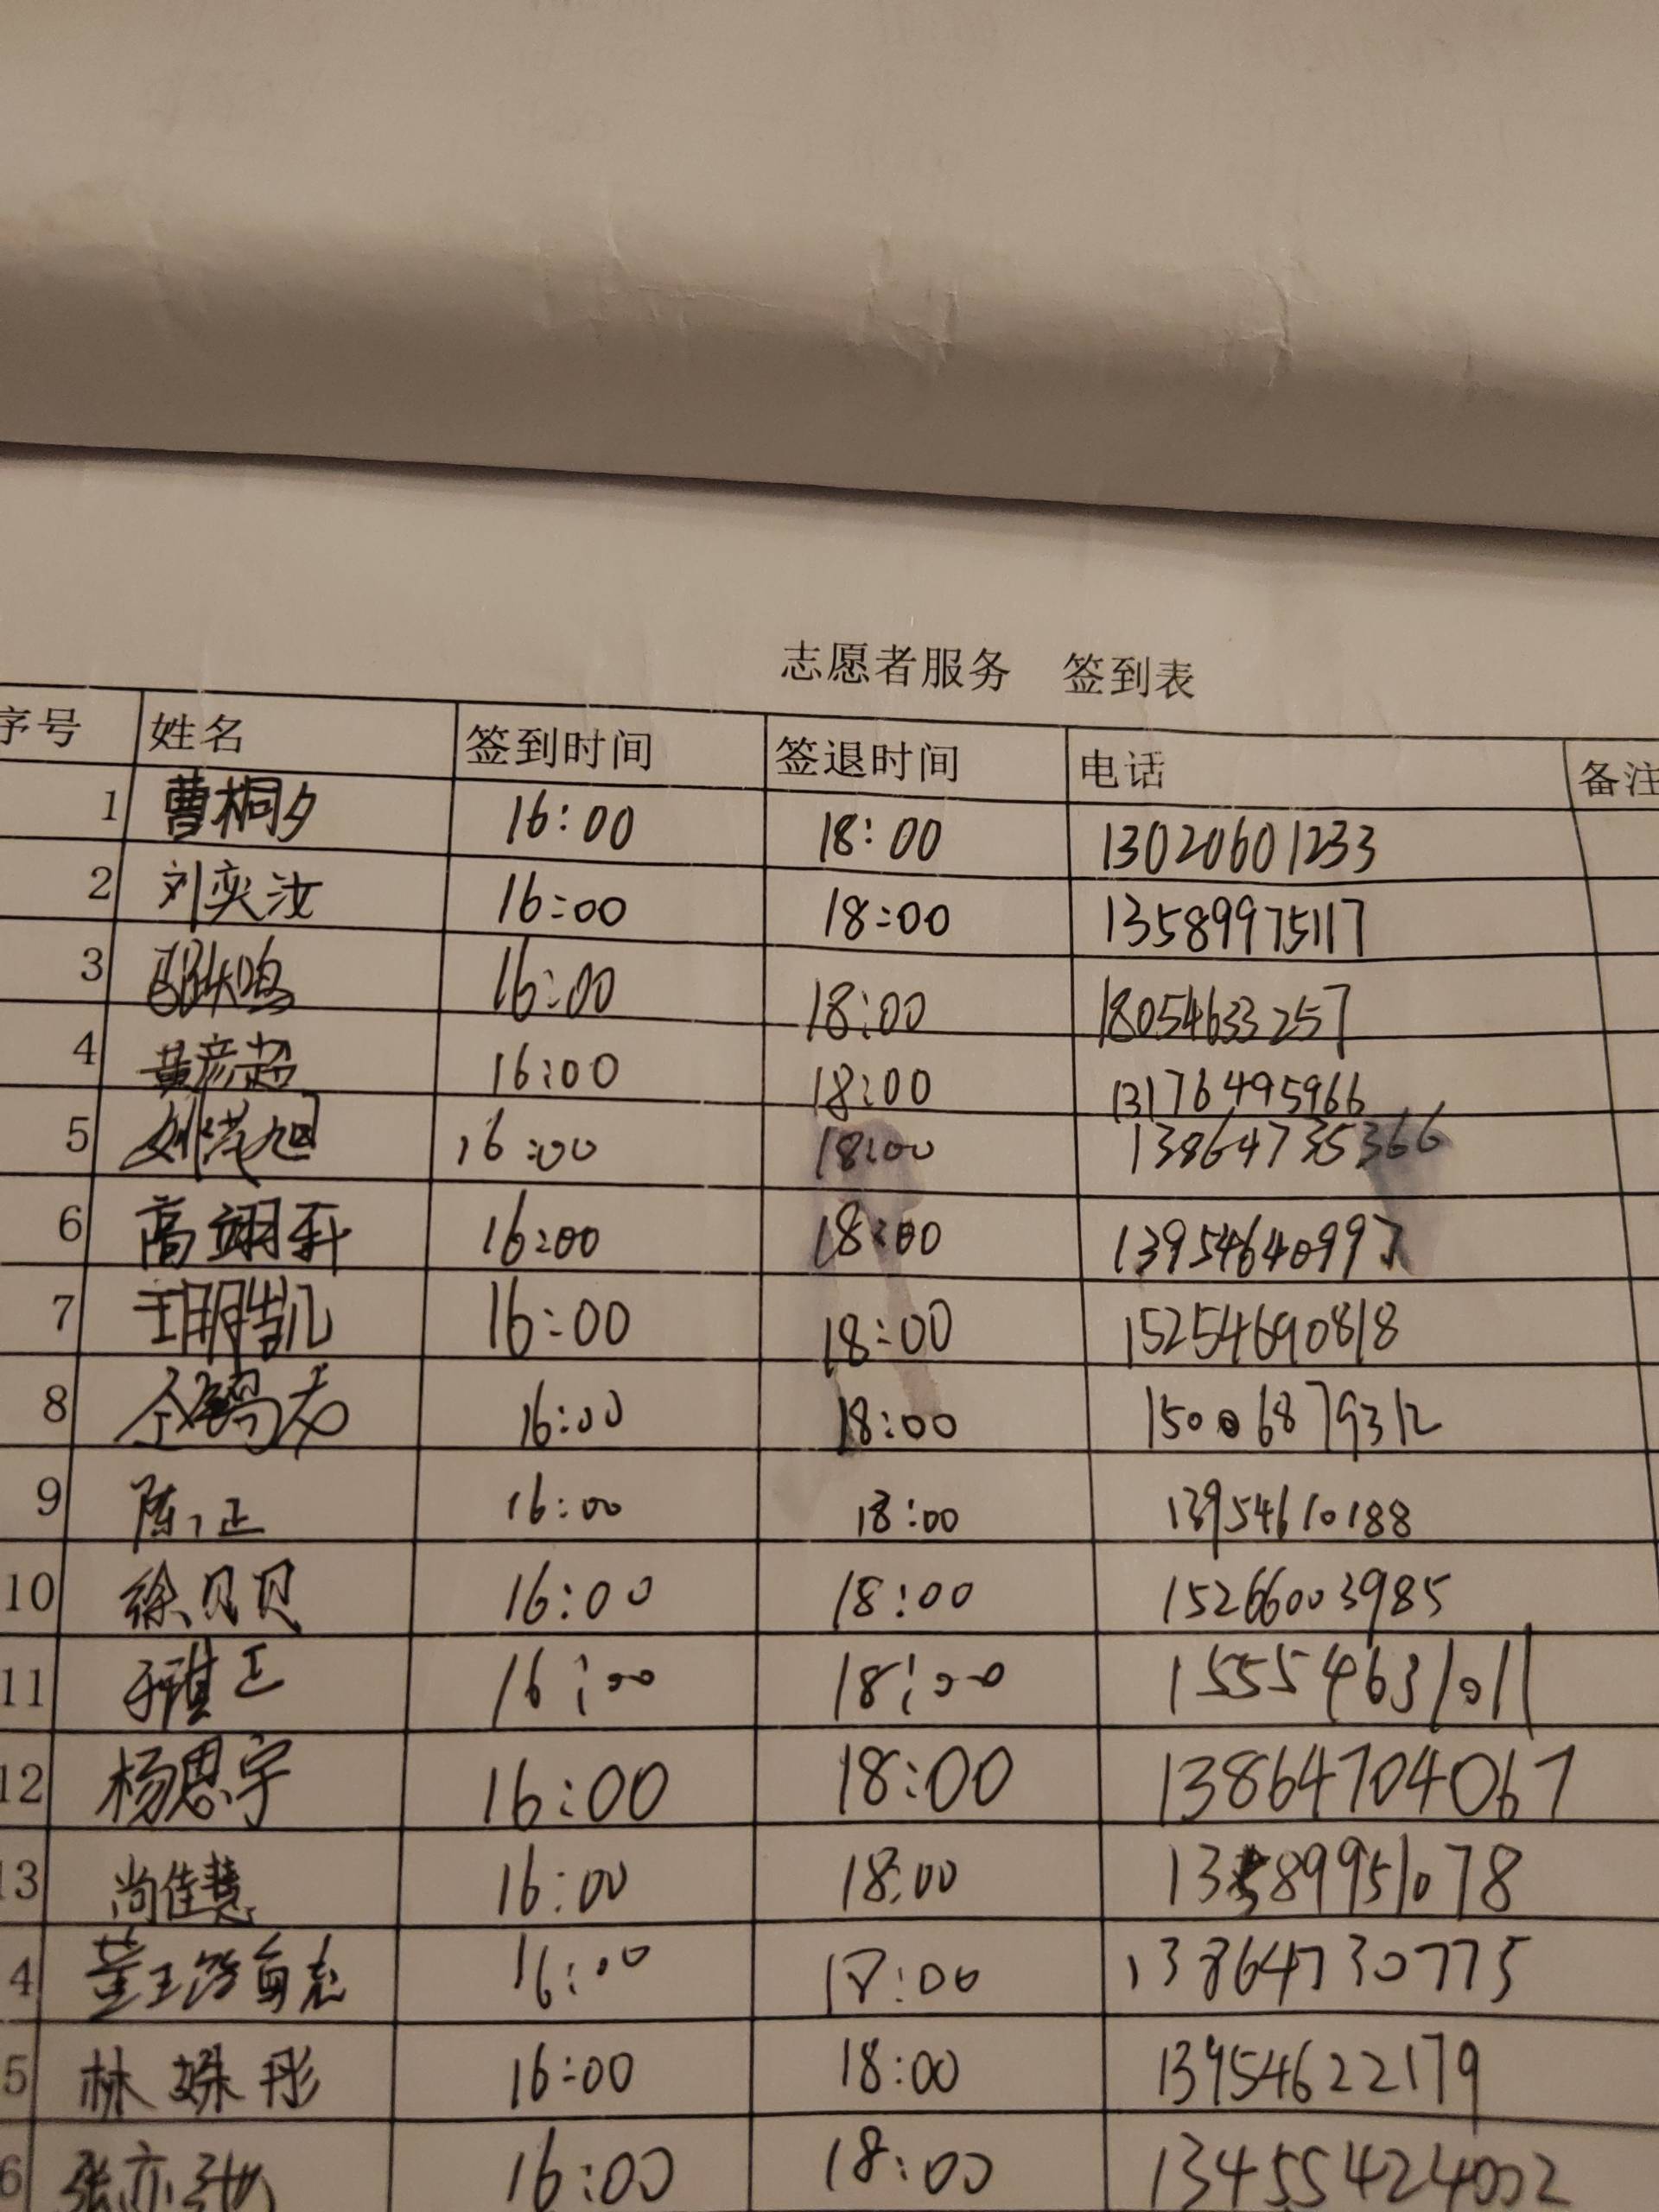 志愿者服务 签到表
序号 姓名 签到时间 签退时间 电话 备注
1 曹桐夕 16:00 18:00 13020601233
2 刘奕汝 16:00 18:00 13589975117
3 16:00 18:00 18054633257
4 黄彦超 16:00 18:00 13176495966
5 姚洪旭 16:00 18:00 13864735366
6 高翊轩 16:00 18:00
7 王明凯 16:00 18:00 15254690818
8 16:00 18:00 15006879312
9 陈正 16:00 18:00 13954610188
10 徐贝贝 16:00 18:00 15266003985
11 于琪正 16:00 18:00 15554631011
12 杨恩宇 16:00 18:00 13864704067
13 尚佳慧 16:00 18:00 13589951078
4 董王 16:00 18:00 13864730775
5 林姝彤 16:00 18:00 13954622179
6 张亦弛 16:00 18:00 13455424002